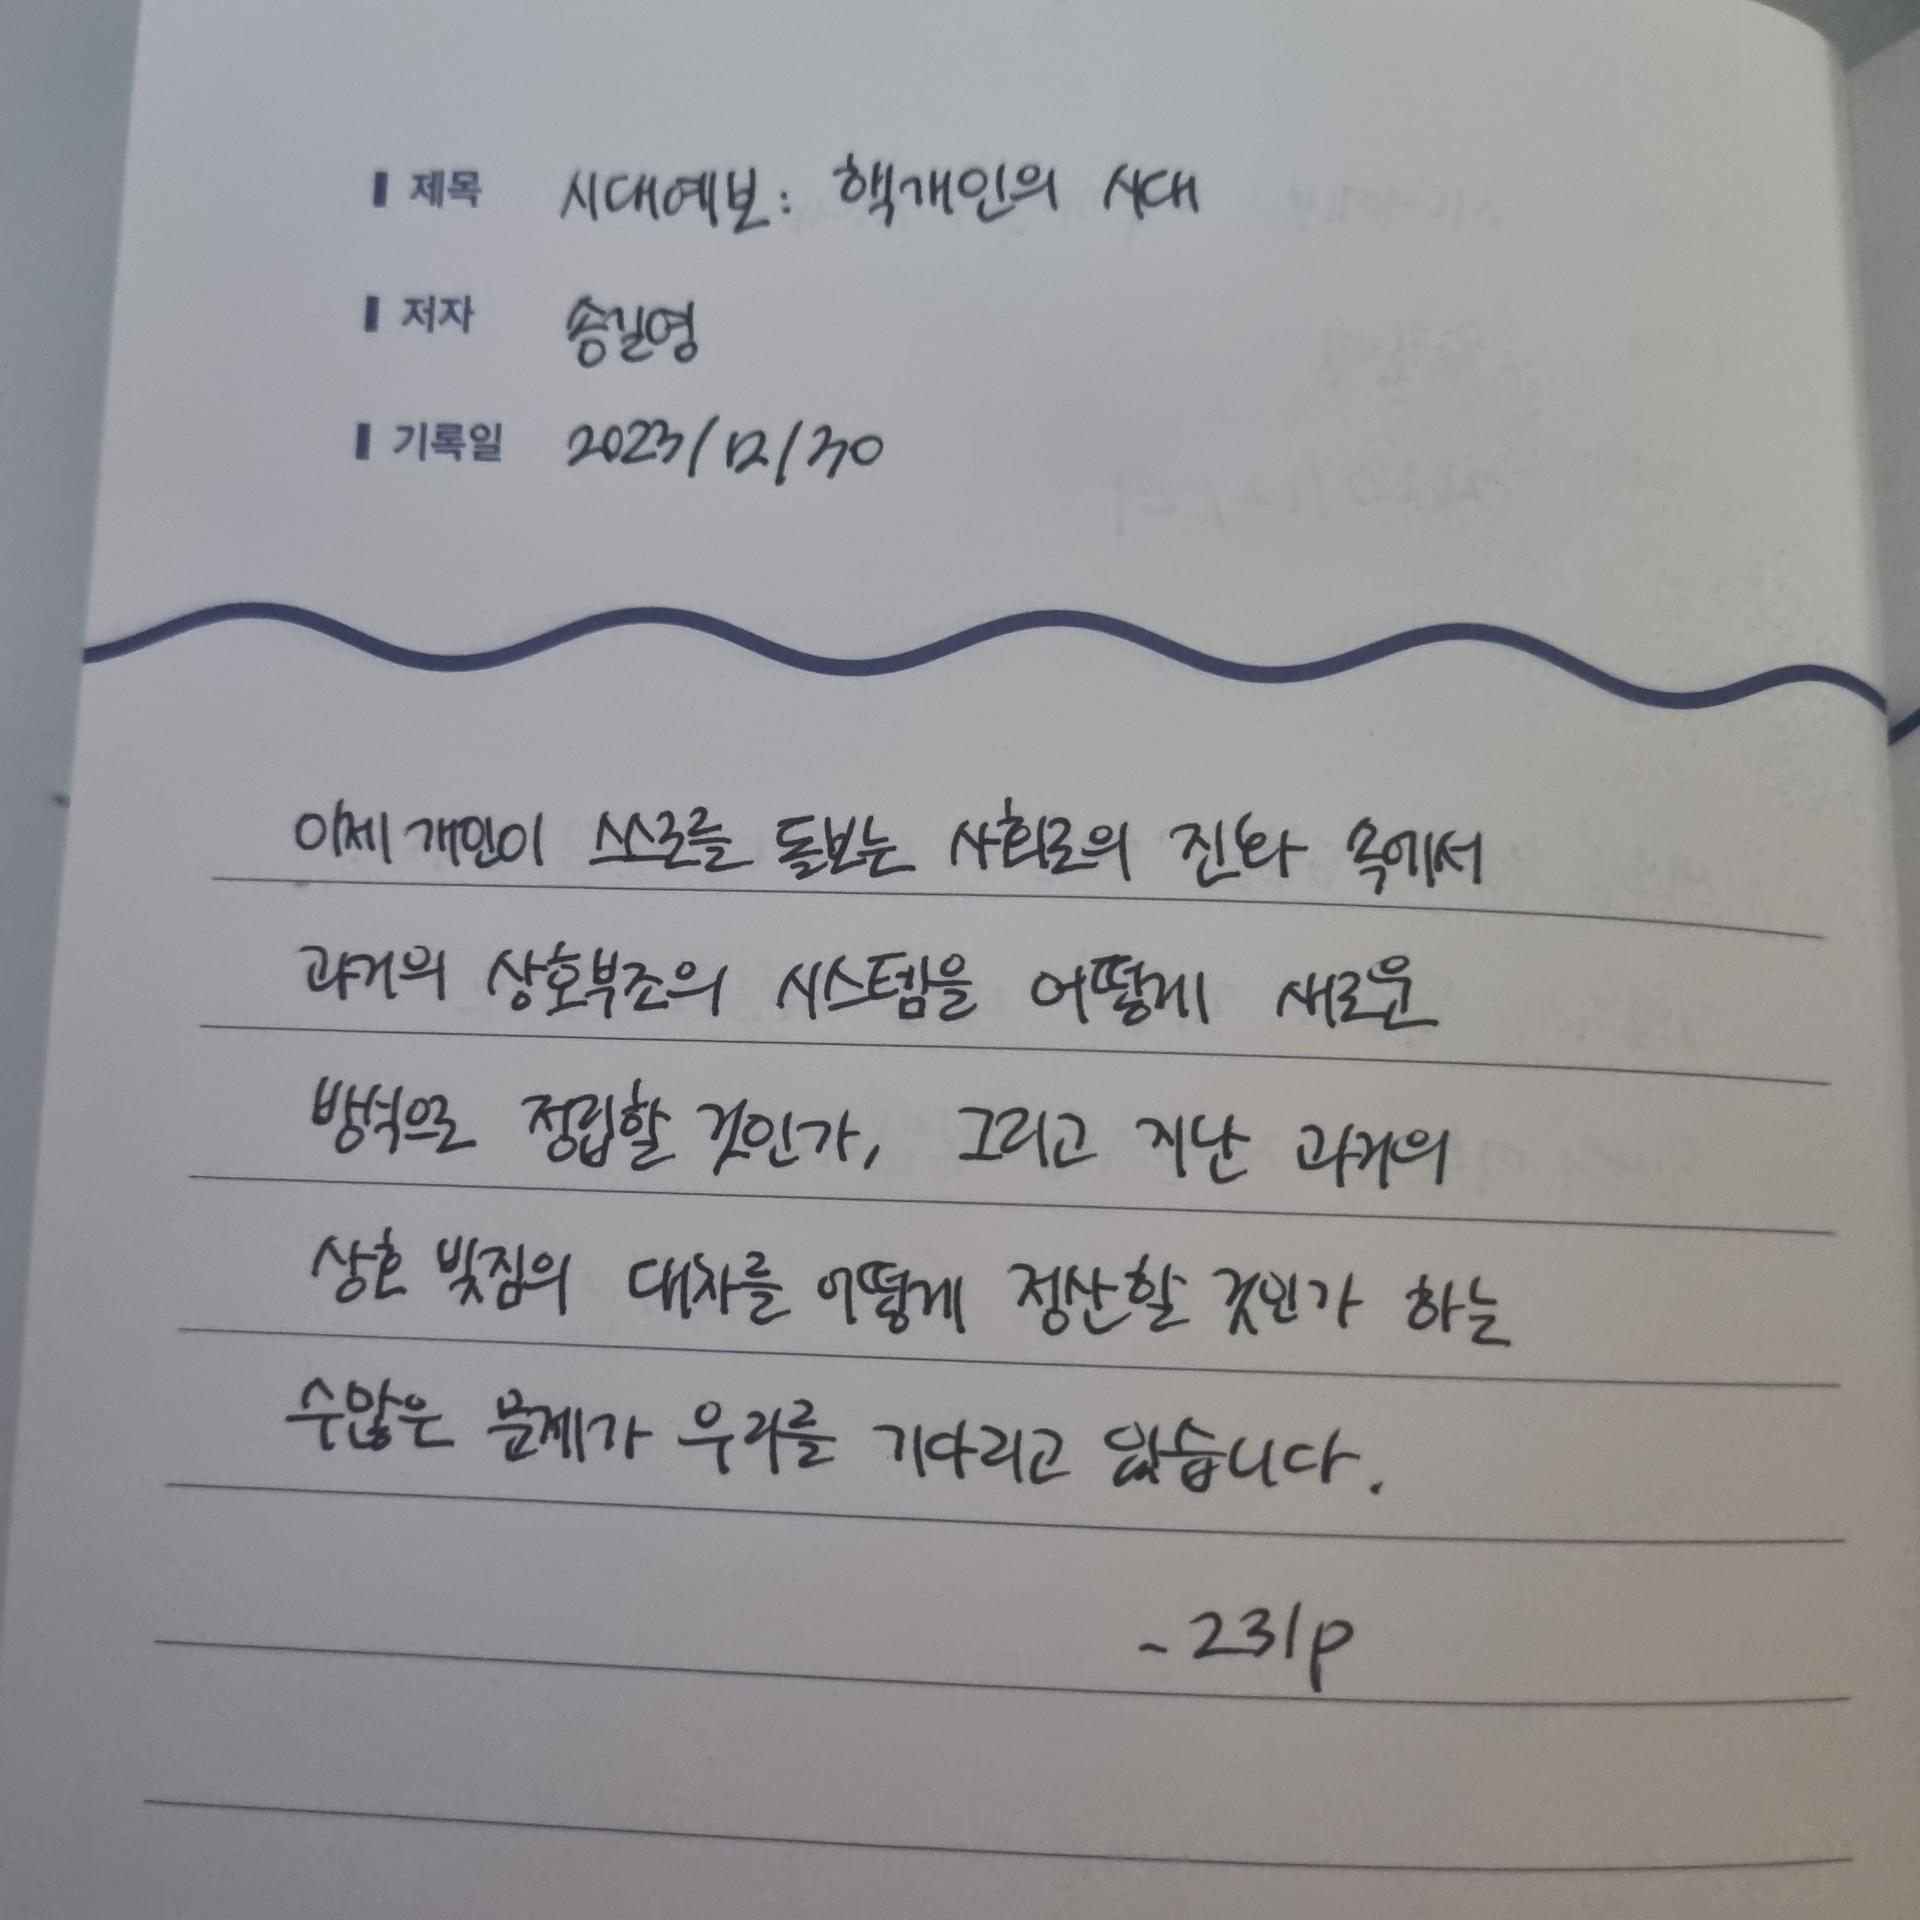 제목 시대예보: 핵개인의 시대
저자 송길영
기록일 2023/12/30
이제 개인이 스스로를 돌보는 사회로의 진화 속에서
과거의 상호부조의 시스템을 어떻게 새로운
방식으로 정립할 것인가, 그리고 지난 과거의
상호 빚짐의 대차를 어떻게 정산할 것인가 하는
수많은 문제가 우리를 기다리고 있습니다.
- 231p